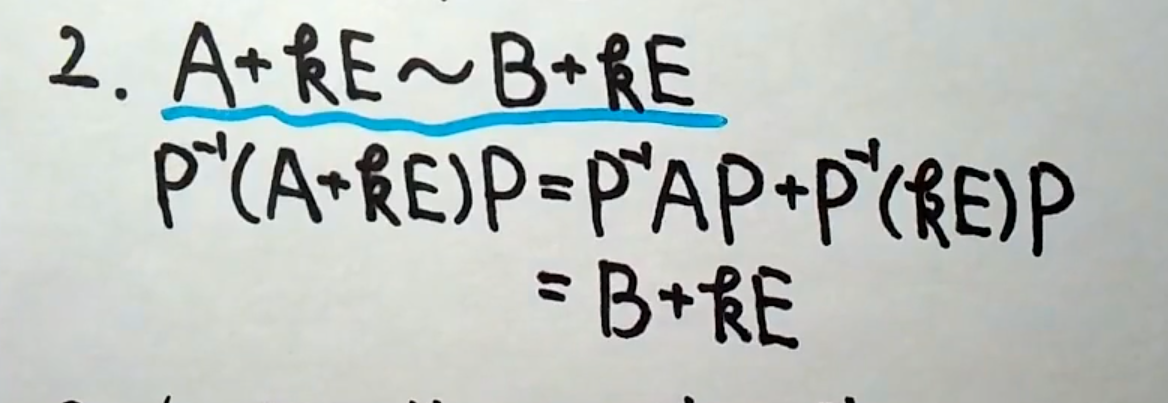 2. A+kE~B+kE
P⁻¹(A+kE)P=P⁻¹AP+P⁻¹(kE)P
=B+kE